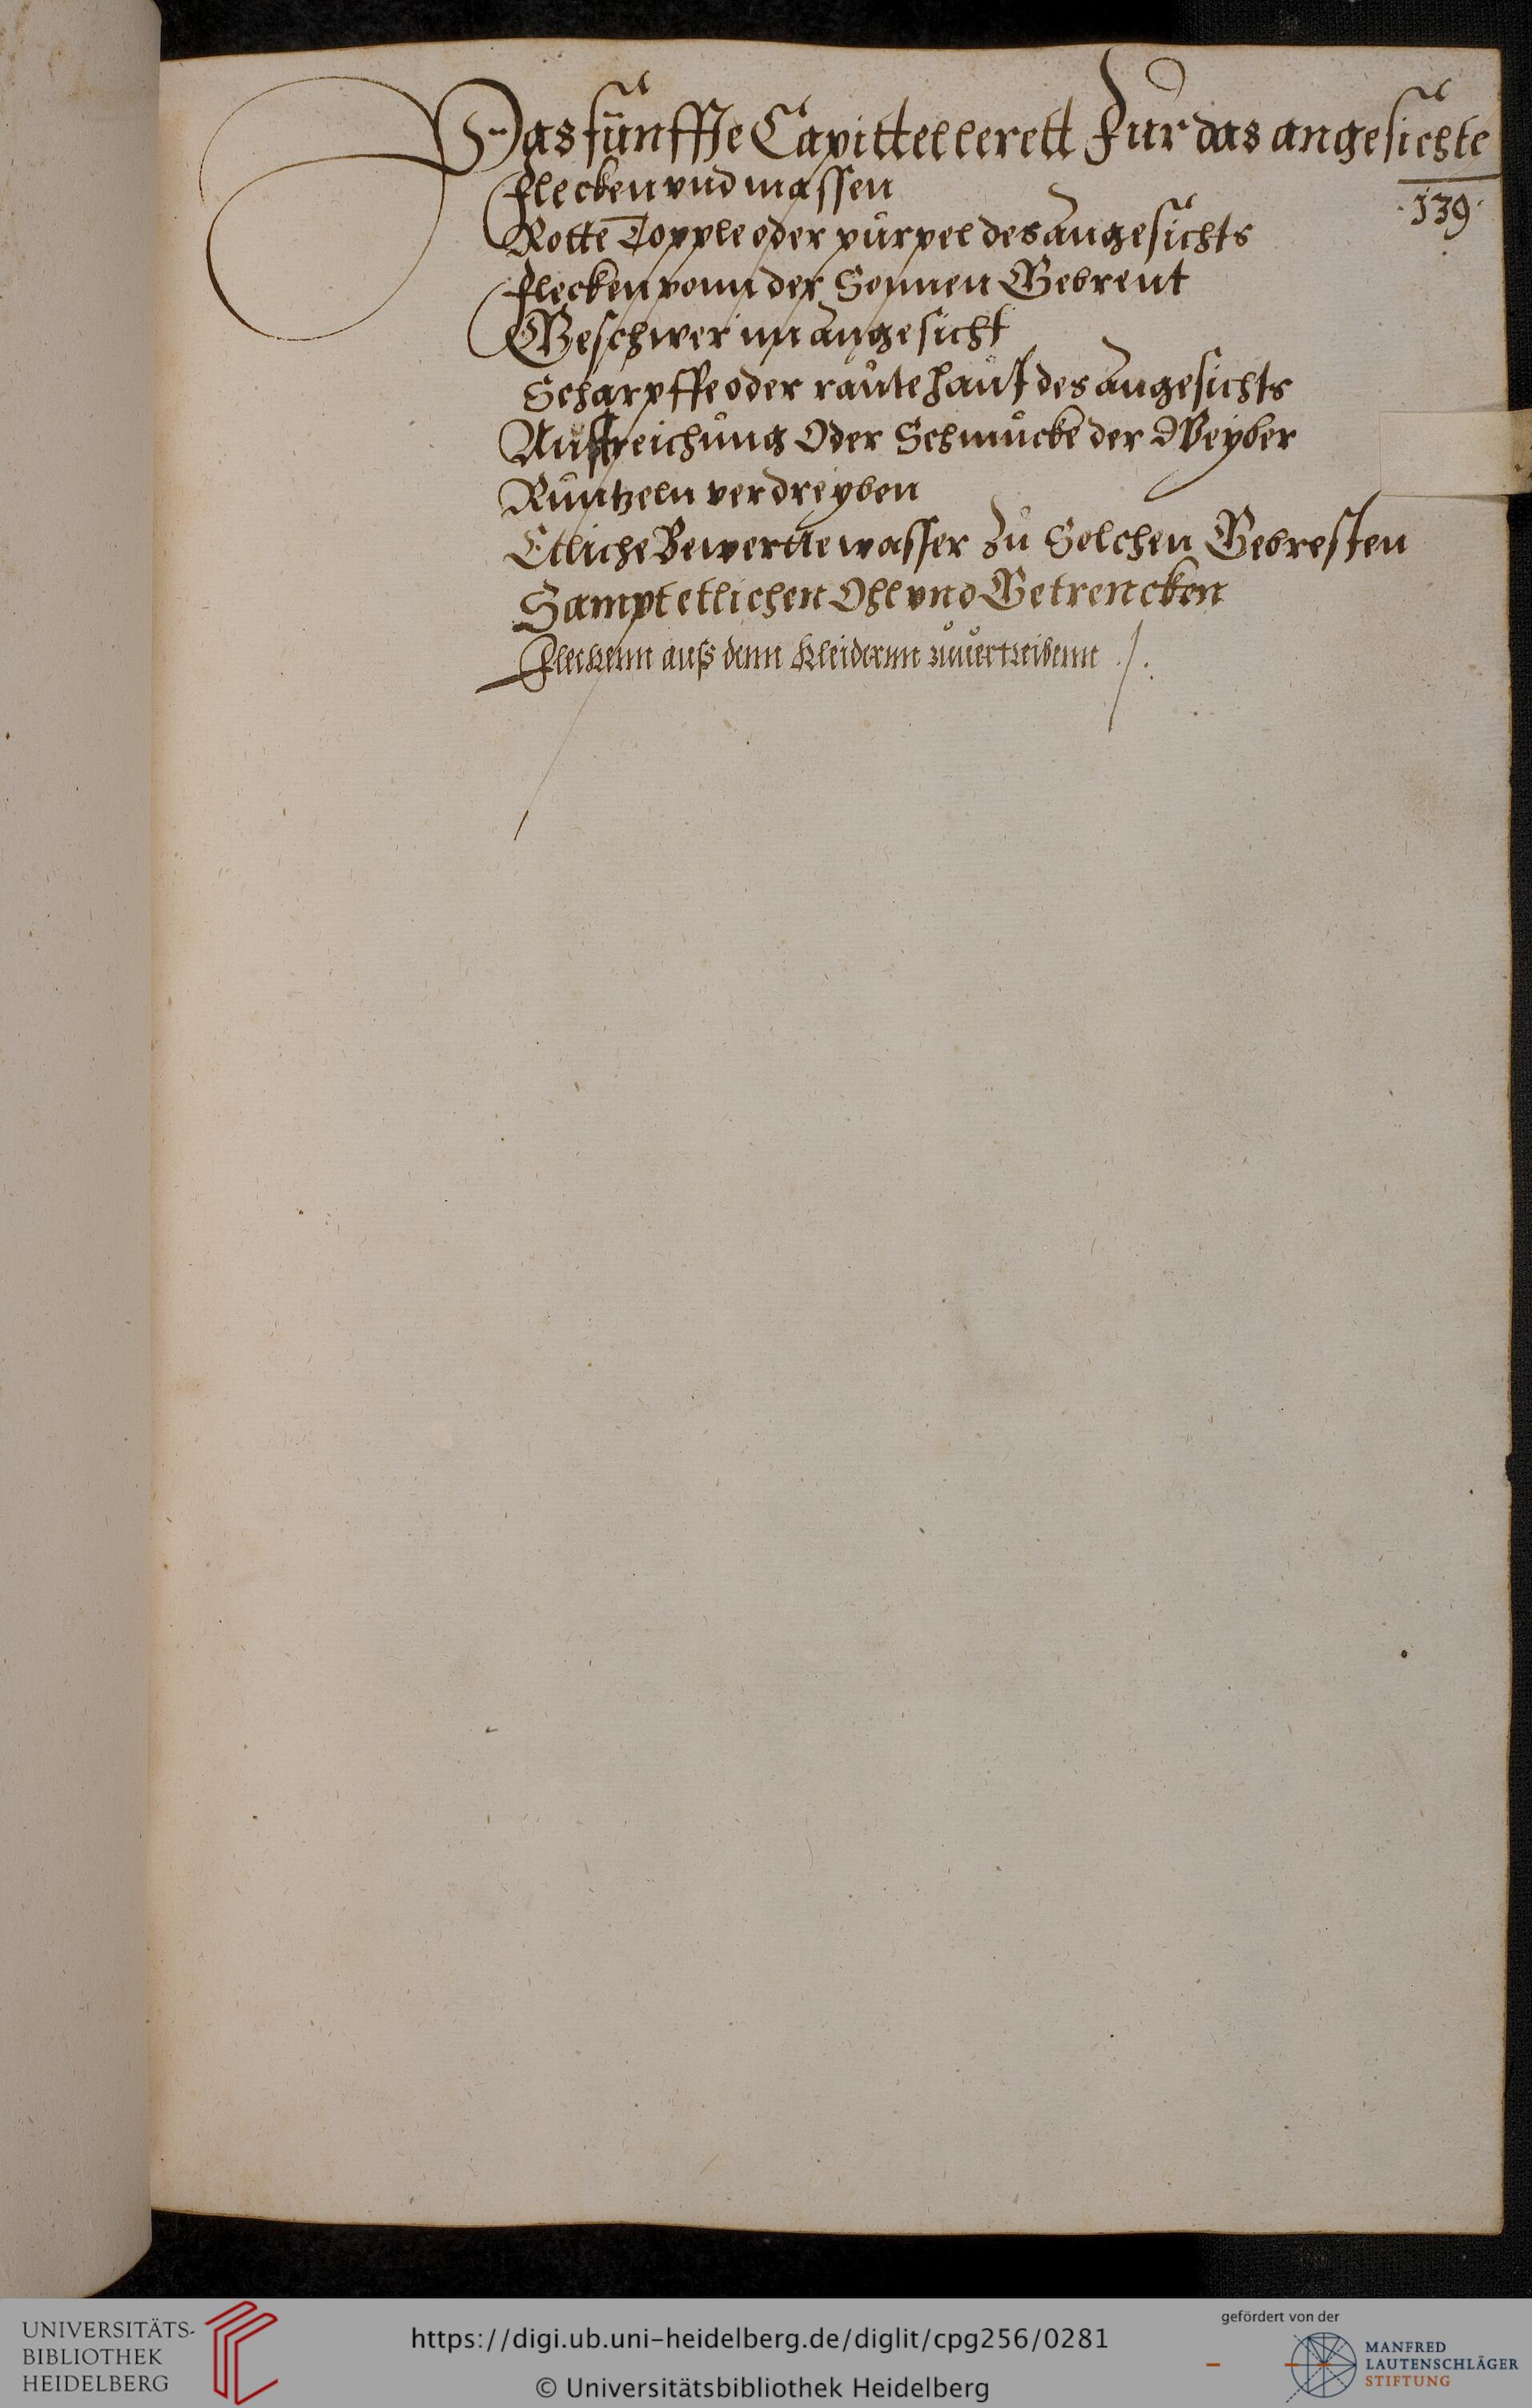 Das fünffte Capittel lerett Fur das angesichte
·139·
Flecken vnd massen
Rotte Topple oder pürpel des Angesichts
Flecken vonn der Sonnen Gebrent
Geschwer im Angesicht
Scharpffe oder raüte haüt des Angesichts
Anstreichüng Oder Schmücke der Weyber
Rüntzeln verdreyben
Etliche Bewertte wasser Zü Solchen Gebresten
Sampt etlichen Ohl vnd Getrencken
Fleckenn auß denn Kleidernn züüertreibenn ./.
UNIVERSITÄTS-
BIBLIOTHEK
HEIDELBERG
https://digi.ub.uni-heidelberg.de/diglit/cpg256/0281
© Universitätsbibliothek Heidelberg
gefördert von der
MANFRED
LAUTENSCHLÄGER
STIFTUNG